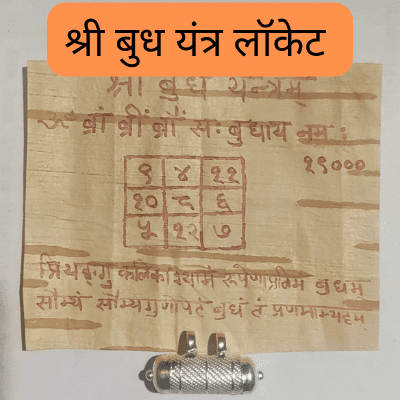 श्री बुध यंत्र लॉकेट
श्री बुध यन्त्रम्
ॐ ब्रां ब्रीं ब्रौं सः बुधाय नमः
१९०००
९ ४ ११
१० ८ ६
५ १२ ७
प्रियङ्गु कलिका श्यामं रूपेणाप्रतिम बुधम
सौम्यं सौम्यगुणोपेतं बुधं तं प्रणमाम्यहम